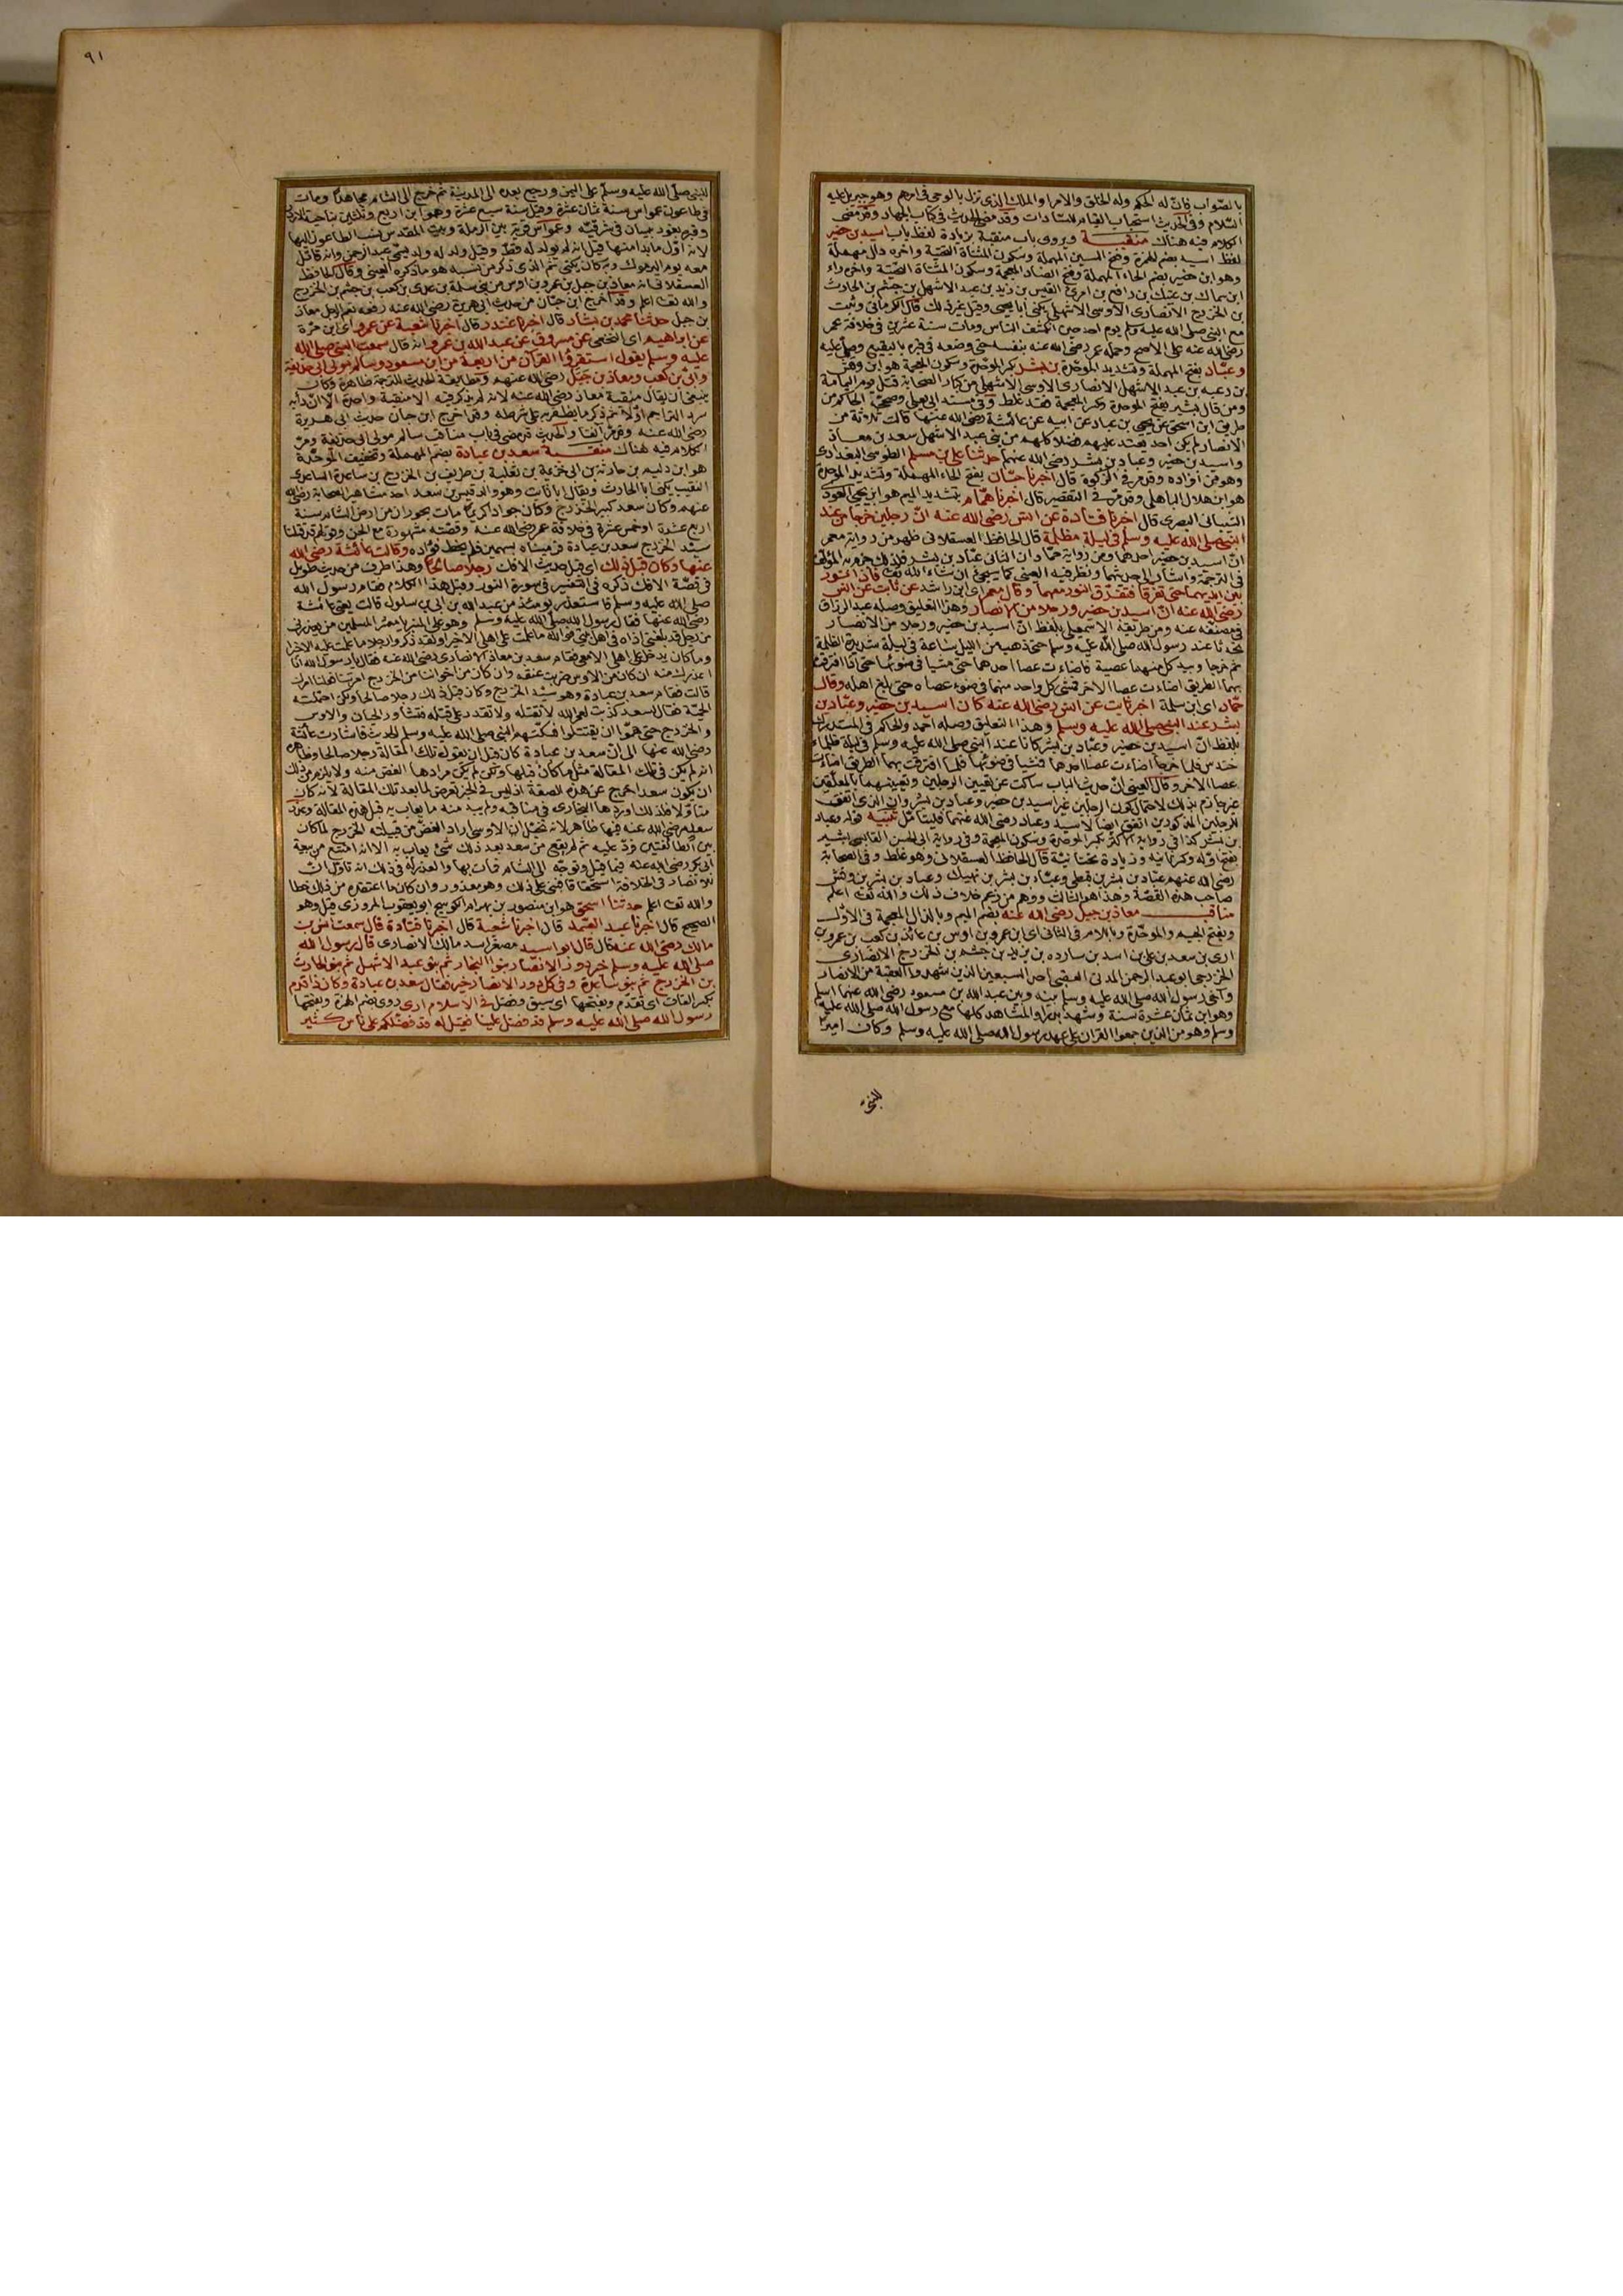 بالصواب فان له الحكم وله الخلق والامر او الملك الذى نزل بالوحى فى امرهم وهو جبريل عليه
السلام وفى الحديث استحباب القيام للسادات وقد مضى الحديث فى كتاب الجهاد وقد مضى
الكلام فيه هناك منقبة ويروى باب منقبة بزيادة لفظ باب اسيد بن حضير
لفظ اسيد بضم الهمزة وفتح السين المهملة وسكون المثناة التحتية واخره دال مهملة
وهو ابن حضير بضم الحاء المهملة وفتح الضاد المعجمة وسكون المثناة التحتية واخره راء
ابن سماك بن عتيك بن رافع بن امرئ القيس بن زيد بن عبد الاشهل بن جشم بن الحارث
بن الخزرج الانصارى الاوسى الاشهلى يكنى أبا يحيى وقيل غير ذلك قال الكرمانى وثبت
مع النبى صلى الله عليه وسلم يوم احد حين انكشف الناس ومات سنة عشرين فى خلافة عمر
رضى الله عنه على الاصح وحمله عمر رضى الله عنه بنفسه حتى وضعه فى قبره بالبقيع وصلى عليه
وعبّاد بفتح المهملة وتشديد الموحّدة بن بشر بكسر الموحّدة وسكون المعجمة هو ابن وقش
بن زعبه بن عبد الاشهل الانصارى الاوسى الاشهلى من كبار الصحابة قتل يوم اليمامة
ومن قال بشير بفتح الموحدة وكسر المعجمة فقد غلط وفى مسند ابى يعلى وصححه الحاكم من
طريق ابن اسحق عن يحيى بن عباد عن ابيه عن عائشة رضى الله عنها قالت ثلاثة من
الانصار لم يكن احد يعتد عليهم فضلا كلهم من بنى عبد الاشهل سعد بن معاذ
واسيد بن حضير وعباد بن بشر رضى الله عنهم حدثنا على بن مسلم الطوسى البغدادى
وهو من افراده وقد مر فى الزكوة قال اخبرنا حبّان بفتح الحاء المهملة وتشديد الموحدة
هو ابن هلال الباهلى وقد مر فى التقصير قال اخبرنا همّام بتشديد الميم هو ابن يحيى العوذى
الشيبانى البصرى قال اخبرنا قتادة عن انس رضى الله عنه انّ رجلين خرجا من عند
النبى صلى الله عليه وسلم فى ليلة مظلمة قال الحافظ العسقلانى ظهر من رواية معمر
انّ اسيد بن حضير احدهما ومن رواية حمّاد ان الثانى عبّاد بن بشر فلذلك جزم به المؤلف
فى الترجمة واشار الى حديثهما ونظر فيه العينى كما سيجئ ان شاء الله تعالى فاذا نور
بين ايديهما حتى تفرقا فتفرّق النور معهما وقال معمر اى ابن راشد عن ثابت عن انس
رضى الله عنه انّ اسيد بن حضير ورجلا من الانصار وهذا التعليق وصله عبد الرزاق
فى مصنفه عنه ومن طريقه الاسمعيلى بلفظ انّ اسيد بن حضير ورجلا من الانصار
تحدّثا عند رسول الله صلى الله عليه وسلم حتى ذهب من الليل ساعة فى ليلة شديدة الظلمة
ثم خرجا وبيد كل منهما عصية فاضاءت عصا احدهما حتى مشيا فى ضوئها حتى اذا افترقت
بهما الطريق اضاءت عصا الاخر فمشى كل واحد منهما فى ضوء عصاه حتى بلغ اهله وقال
حمّاد اى ابن سلمة اخبر ثابت عن انس رضى الله عنه كان اسيد بن حضير وعبّاد بن
بشر عند النبى صلى الله عليه وسلم وهذا التعليق وصله احمد والحاكم فى المستدرك
بلفظ انّ اسيد بن حضير وعبّاد بن بشر كانا عند النبى صلى الله عليه وسلم فى ليلة ظلماء
حندس فلما خرجا اضاءت عصا احدهما فمشيا فى ضوئها فلما افترقت بهما الطريق اضاءت
عصا الاخر وقال العينى انّ حديث الباب ساكت عن تعيين الرجلين وتعيينهما بالمعلّقين
غير جازم بذلك لاحتمال كون الرجلين غير اسيد بن حضير وعباد بن بشر وان الذى اتفق
للرجلين المذكورين اتفق ايضا لاسيد وعباد رضى الله عنهما فليتامّل تنبيه قوله وعباد
بن بشر كذا فى رواية الاكثر بكسر الموحدة وسكون المعجمة وفى رواية ابى الحسن القابسى بشير
بفتح اوّله وكسر ثانيه وزيادة تحتانيّة قال الحافظ العسقلانى وهو غلط وفى الصحابة
رضى الله عنهم عبّاد بن بشر بن قيظى وعبّاد بن بشر بن نهيك وعباد بن بشر بن وقش
صاحب هذه القصّة وهذا هو الثالث ووهم من زعم خلاف ذلك والله تعالى اعلم
مناقب معاذ بن جبل رضى الله عنه بضم الميم وبالذال المعجمة فى الاوّل
وبفتح الجيم والموحّدة وباللام فى الثانى اى ابن عمرو بن اوس بن عائذ بن كعب بن عمرو بن
ادى بن سعد بن على بن اسد بن سارده بن يزيد بن جشم بن الخزرج الانصارى
الخزرجى ابو عبد الرحمن المدنى العقبى احد السبعين الذين شهدوا العقبة من الانصار
وآخى رسول الله صلى الله عليه وسلم بينه وبين عبد الله بن مسعود رضى الله عنهما اسلم
وهو ابن ثمان عشرة سنة وشهد بدرا والمشاهد كلها مع رسول الله صلى الله عليه
وسلم وهو من الذين جمعوا القران على عهد رسول الله صلى الله عليه وسلم وكان اميرا
للنبى
٩١
للنبى صلى الله عليه وسلم على اليمن ورجع بعده الى المدينة ثم خرج الى الشام مجاهدا ومات
فى طاعون عمواس سنة ثمان عشرة وقيل سنة سبع عشرة وهو ابن اربع وثلثين بناحية الاردن
وقبره بغور بيسان فى شرقيّه وعمواس قرية بين الرملة وبيت المقدس نسب الطاعون اليها
لانه اوّل ما بدا منها قيل انه لم يولد له قط وقيل ولد له ولد يسمى عبد الرحمن وانه قاتل
معه يوم اليرموك وبه كان يكنى ثم الذى ذكر من نسبه هو ما ذكره العينى وقال الحافظ
العسقلانى انه معاذ بن جبل بن عمرو بن اوس من بنى سلمة بن على بن كعب بن جشم بن الخزرج
والله تعالى اعلم وقد اخرج ابن حبّان من حديث ابى هريرة رضى الله عنه رفعه نعم الرجل معاذ
بن جبل حدثنا محمد بن بشار قال اخبرنا غندر قال اخبرنا شعبة عن عمرو اى ابن مرّة
عن ابراهيم اى النخعى عن مسروق عن عبد الله بن عمرو انه قال سمعت النبى صلى الله
عليه وسلم يقول استقرؤا القرآن من اربعة من ابن مسعود وسالم مولى ابى حذيفة
وابىّ بن كعب ومعاذ بن جبل رضى الله عنهم ومطابقة الحديث للترجمة ظاهرة وكان
ينبغى ان يقال منقبة معاذ رضى الله عنه لانه لم يذكر فيه الا منقبة واحدة الا انّ دأبه
سرد التراجم اوّلا ثم ذكر ما يظفر به على شرطه وقد اخرج ابن حبان حديث ابى هريرة
رضى الله عنه وقد مرّ آنفا والحديث قد مضى فى باب مناقب سالم مولى ابى حذيفة ومرّ
الكلام فيه هناك منقبة سعد بن عبادة بضم المهملة وتخفيف الموحّدة
هو ابن دليم بن حارثة بن ابى خزيمة بن ثعلبة بن طريف بن الخزرج بن ساعدة الساعدى
النقيب يكنى ابا الحارث ويقال ابا ثابت وهو والد قيس بن سعد احد مشاهير الصحابة رضى الله
عنهم وكان سعد كبير الخزرج وكان جوادا كريما مات بحوران من ارض الشام سنة
اربع عشرة او خمس عشرة فى خلافة عمر رضى الله عنه وقصّته مشهورة مع الجن وقولهم قد قتلنا
سيّد الخزرج سعد بن عبادة فرميناه بسهمين فلم يخط فؤاده وقالت عائشة رضى الله
عنها وكان قبل ذلك اى قبل حديث الافك رجلا صالحا وهذا طرف من حديث طويل
فى قصّة الافك ذكره فى التفسير فى سورة النور وقبل هذا الكلام فقام رسول الله
صلى الله عليه وسلم فاستعذر يومئذ من عبد الله بن ابى بن سلول قالت يعنى عائشة
رضى الله عنها فقال رسول الله صلى الله عليه وسلم وهو على المنبر يا معشر المسلمين من يعذرنى
من رجل قد بلغنى اذاه فى اهل بيتى فوالله ما علمت على اهلى الا خيرا ولقد ذكروا رجلا ما علمت عليه الا خيرا
وما كان يدخل على اهلى الا معى فقام سعد بن معاذ الانصارى رضى الله عنه فقال يا رسول الله انا
اعذرك منه ان كان من الاوس ضربت عنقه وان كان من اخواننا من الخزرج امرتنا ففعلنا امرك
قالت فقام سعد بن عبادة وهو سيّد الخزرج وكان قبل ذلك رجلا صالحا ولكن احتملته
الحميّة فقال لسعد كذبت لعمر الله لا تقتله ولا تقدر على قتله فتثاور الحيان والاوس
والخزرج حتى همّوا ان يقتتلوا فسكّتهم النبى صلى الله عليه وسلم الحديث فاشارت عائشة
رضى الله عنها الى انّ سعد بن عبادة كان قبل ان يقول تلك المقالة رجلا صالحا وظاهره
انه لم يكن فى تلك المقالة مثل ما كان قبلها ولكن لم يكن مرادها الغض منه ولا يلزم من ذلك
ان يكون سعد اخرج عن هذه الصفة اذ ليس فى الخبر تعرض لما بعد تلك المقالة لانه كان
متأوّلا فلذلك اوردها البخارى فى مناقبه ولم يبد منه ما يعاب به قبل هذه المقالة وعذر
سعد رضى الله عنه فيها ظاهر لانه تخيّل ان الاوسى اراد الغضّ من قبيلته الخزرج لما كان
بين الطائفتين فردّ عليه ثم لم يقع من سعد بعد ذلك شئ يعاب به الا انه امتنع من بيعة
ابى بكر رضى الله عنه فيما قيل وتوجّه الى الشام فمات بها والعذر له فى ذلك انه تاول انّ
للانصار فى الخلافة استحقاقا فبنى على ذلك وهو معذور وان كان ما اعتقده من ذلك خطا
والله تعالى اعلم حدثنا اسحق هو ابن منصور بن بهرام الكوسج ابو يعقوب المروزى قيل وهو
الصحيح قال اخبرنا عبد الصّمد قال اخبرنا شعبة قال اخبرنا قتادة قال سمعت انس بن
مالك رضى الله عنه قال قال ابو اسيد مصغر اسد مالك الانصارى قال رسول الله
صلى الله عليه وسلم خير دور الانصار بنوا النجار ثم بنو عبد الاشهل ثم بنو الحارث
بن الخزرج ثم بنو ساعدة وفى كل دور الانصار خير فقال سعد بن عبادة وكان ذا قدم
بكسر القاف اى تقدّم وبفتحها اى سبق وفضل فى الاسلام ارى روى بضم الهمزة وبفتحها
رسول الله صلى الله عليه وسلم قد فضل علينا فقيل له قد فضّلكم على ناس كثير